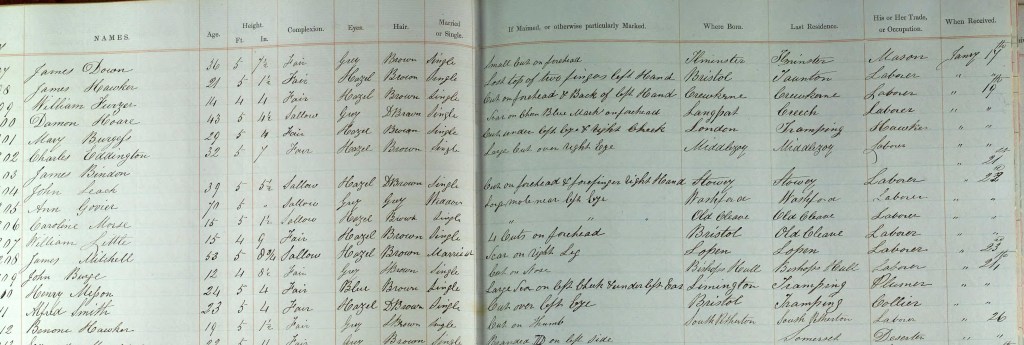 NAMES. Age. Height. Ft In. Complexion. Eyes. Hair. Married or Single. If Maimed, or otherwise particularly Marked. Where Born. Last Residence. His or Her Trade, or Occupation. When Received.
James Down 36 5 7½ Fair Grey Brown Single Small Cut on forehead Ilminster Ilminster Mason Jany 17th
James Hawker 21 5 1½ Fair Hazel Brown Single Lost top of two fingers left Hand Bristol Taunton Laborer " "
William 14 4 4 Fair Hazel Brown Single Cut on forehead & Back of left Hand Crewkerne Crewkerne Laborer " 19th
00 Damon Hoare 43 5 4½ Sallow Grey DBrown Single Scar on Chin Blue Mark on forehead Langport Creech Laborer " "
01 Mary Burgess 29 5 4 Fair Hazel Brown Single Cut under left Eye & right Cheek London Tramping Hawker " "
02 Charles Eddington 32 5 7 Fair Hazel Brown Single Large Cut over right Eye Middlezoy Middlezoy Labour " "
03 James Bindon " 21st
04 John Leach 39 5 5½ Sallow Hazel DBrown Single Cut on forehead & forefinger right Hand Stowey Stowey Laborer " 22
05 Ann Govier 70 5 " Sallow Grey Grey Widow Large mole near left Eye Washford Washford Laborer " "
06 Caroline Morse 15 5 1½ Sallow Hazel Brown Single " " Old Cleeve Old Cleeve Laborer " "
07 William Little 15 4 9 Fair Hazel Brown Single 4 Cuts on forehead Bristol Old Cleeve Laborer " "
08 James Mitchell 53 5 8¾ Sallow Hazel Brown Married Scar on right Leg Lopen Lopen Laborer " 23rd
09 John Burge 12 4 8½ Fair Grey Brown Single Cut on Nose Bishops Hull Bishops Hull Laborer " 24th
10 Henry 24 5 4 Fair Blue Brown Single Large Scar on left Cheek & under left Ear Limington Tramping Plumer " "
11 Alfred Smith 23 5 4 Fair Hazel DBrown Single Cut over left Eye Bristol Tramping Collier " "
12 Benone Hawker 19 5 1½ Fair Grey Brown Single Cut on Thumb South Petherton South Petherton Labour " 26
Branded D on left side Somerset Deserter